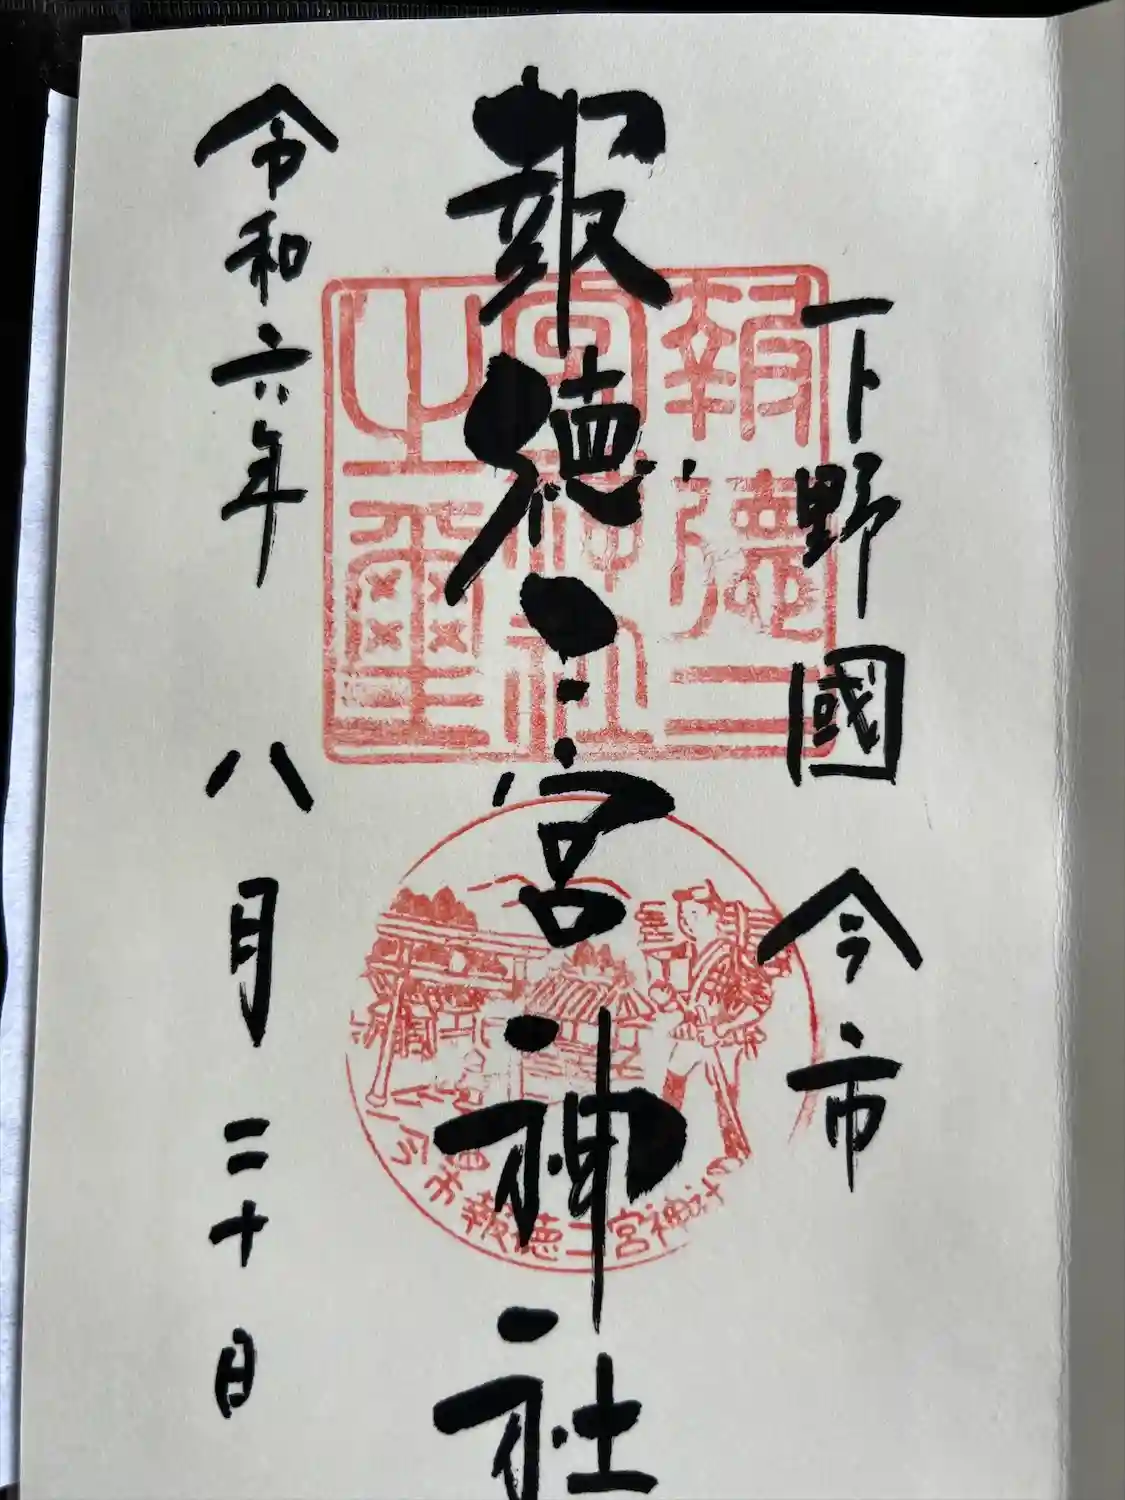 下野國 今市
報徳二宮神社
令和六年 八月 二十日
報徳二
宮神社
之璽
今市報徳二宮神社